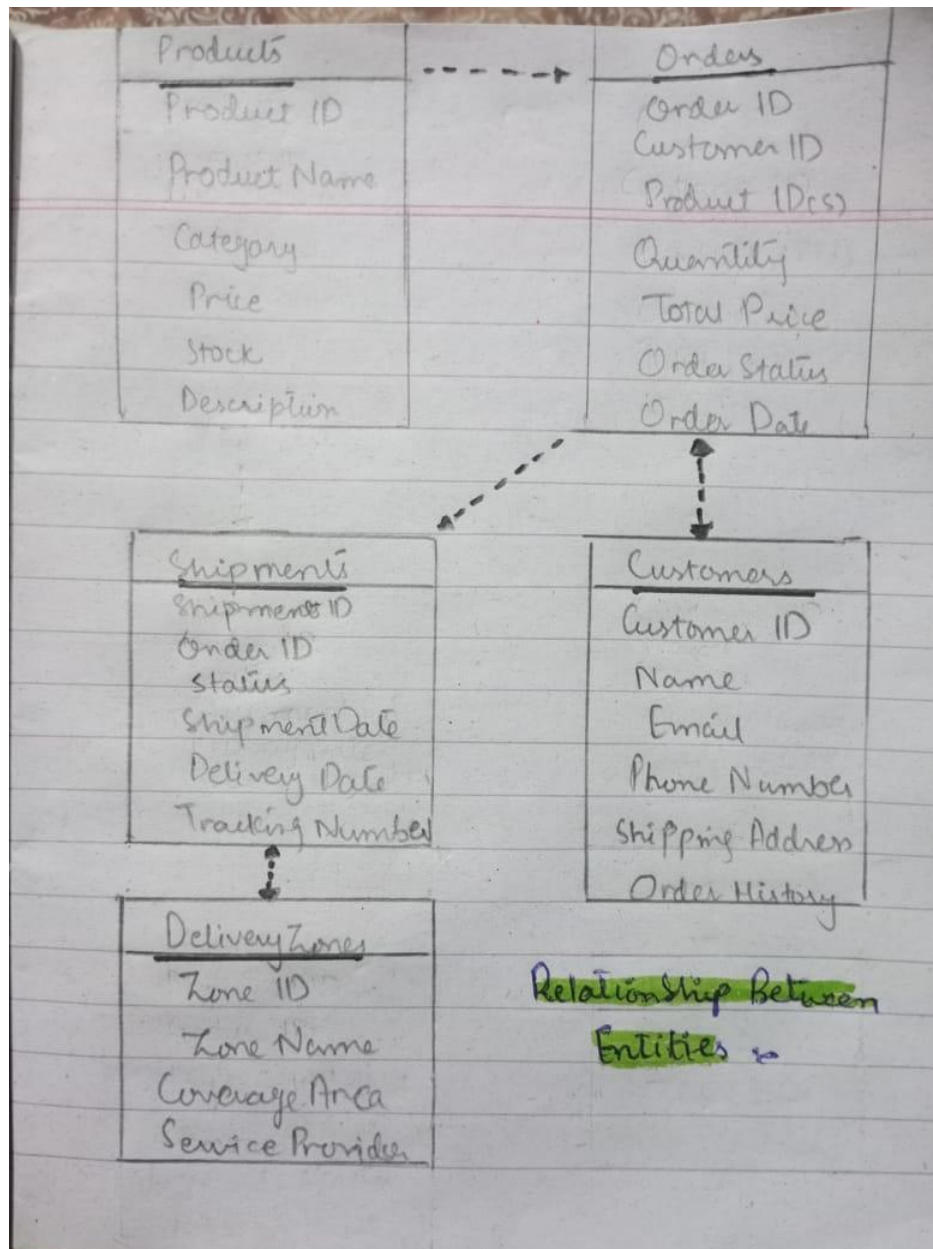 Products
Product ID
Product Name
Category
Price
Stock
Description
Orders
Order ID
Customer ID
Product ID(s)
Quantity
Total Price
Order Status
Order Date
Shipments
Shipment ID
Order ID
Status
Shipment Date
Delivery Date
Tracking Number
Customers
Customer ID
Name
Email
Phone Number
Shipping Address
Order History
Delivery Zones
Zone ID
Zone Name
Coverage Area
Service Provider
Relationship Between
Entities